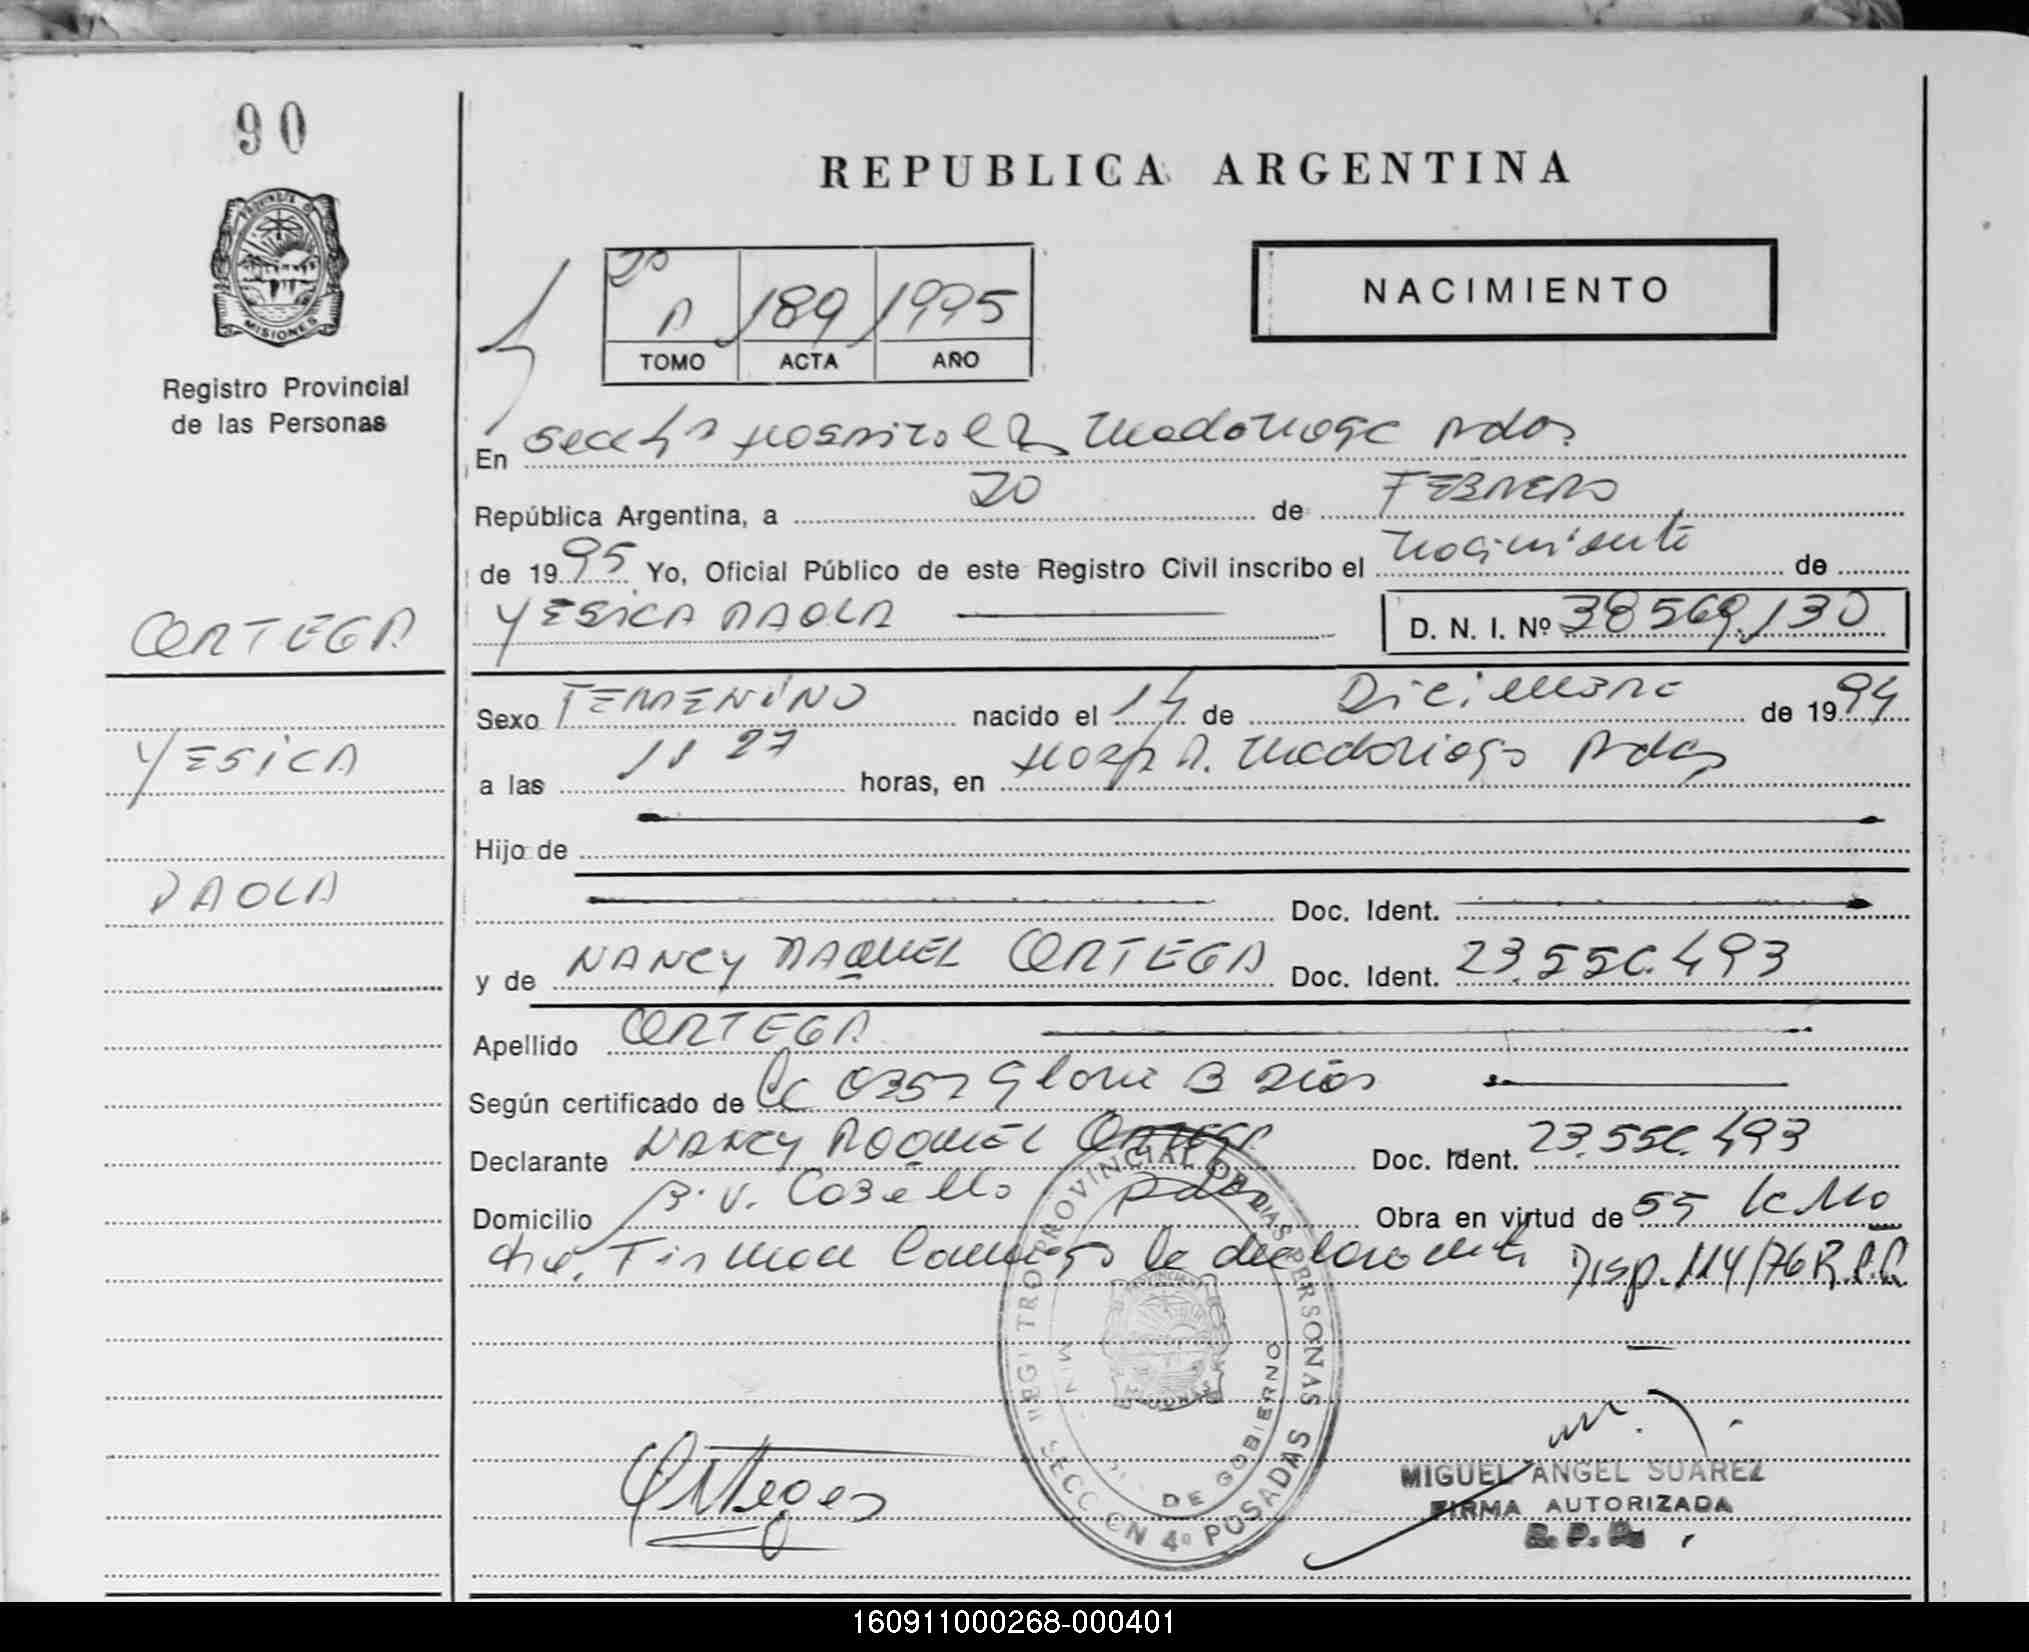 90
REPUBLICA ARGENTINA
PROVINCIA DE
MISIONES
Registro Provincial
de las Personas
NACIMIENTO
2º
A 189 1995
TOMO ACTA AÑO
En Secc 4ta Hospital R Madariaga Pdas.
República Argentina, a 20 de FEBRERO
de 1995 Yo, Oficial Público de este Registro Civil inscribo el Nacimiento de
YESICA PAOLA D. N. I. Nº 38569130
ORTEGA
Sexo FEMENINO nacido el 14 de Diciembre de 1994
YESICA
a las 11 27 horas, en Hosp R. Madariaga Pdas
Hijo de
PAOLA
Doc. Ident.
y de NANCY RAQUEL ORTEGA Doc. Ident. 23.550.493
Apellido ORTEGA
Según certificado de Gloria B Rios
Declarante NANCY RAQUEL ORTEGA Doc. Ident. 23.550.493
Domicilio B. V. Cabello Pdas Obra en virtud de ss
Firman Conmigo la declarante Disp. 114/76 R.P.P.
REGISTRO PROVINCIAL DE LAS PERSONAS
MIN. DE GOBIERNO
MISIONES
SECCION 4º POSADAS
Ortega
MIGUEL ANGEL SUAREZ
FIRMA AUTORIZADA
R. P. P.
160911000268-000401